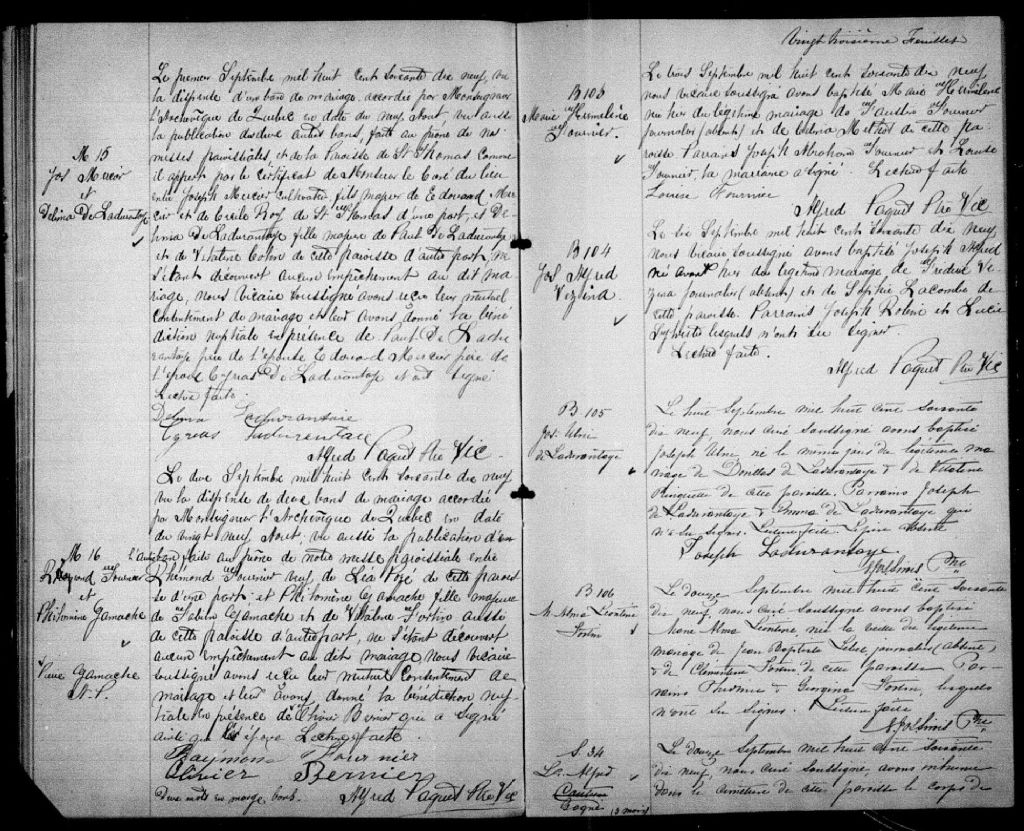 M 15
Jos Mercier
et
Delima De Ladurantaye
Le premier Septembre mil huit cent soixante dix neuf, vu
la dispense d'un bans de mariage accordée par Monseigneur
l'Archevêque de Québec en date du neuf Aout, vu aussi
la publication des deux autres bans, faite au prône de nos
messes paroissiales, et de la Paroisse de St Thomas comme
il appert par le certificat de Monsieur le Curé du lieu
entre Joseph Mercier cultivateur fils majeur de Edouard Mer
cier et de Cecile Roy de St Thomas d'une part, et De
lima De Ladurantaye fille majeure de Paul De Ladurantaye
et de Vitaline Colin de cette paroisse d'autre part, ne
s'étant découvert aucun empêchement au dit ma
riage, Nous Vicaire soussigné avons reçu leur mutuel
consentement de mariage et leur avons donné la béné
diction nuptiale en présence de Paul De Ladu
rantaye père de l'épouse Edouard Mercier père de
l'époux De Ladurantaye et ont signé
Lecture faite.
Delima Ladurantaie
Ladurantaie
Alfred Paquet Ptre Vic
M 16
Raymond Fournier
et
Philomène Gamache
Gamache
Le deux Septembre mil huit cent soixante dix neuf,
vu la dispense de deux bans de mariage accordée
par Monseigneur l'Archevêque de Québec en date
du vingt neuf Aout, vu aussi la publication d'un
faite au prône de notre messe paroissiale entre
Rhémond Fournier veuf de Léa de cette parois
se d'une part, et Philomène Gamache fille mineure
de Sabin Gamache et de Vitaline Fortin aussi
de cette paroisse d'autre part, ne s'étant découvert
aucun empêchement au dit mariage, Nous Vicaire
soussigné avons reçu leur mutuel consentement de
mariage et leur avons donné la bénédiction nup
tiale en présence de Olivier Bernier qui a signé
ainsi que l'époux Lecture faite.
Raymond Fournier
Olivier Bernier
Deux mots en marge bons. Alfred Paquet Ptre Vic
Vingt troisième Feuillet
B 103
Marie Hermeline
Fournier.
Le trois Septembre mil huit cent soixante dix neuf
nous vicaire soussigné avons baptisé Marie Hermeline
née hier du légitime mariage de Faustin Fournier
journalier (absent) et de Methot de cette pa
roisse Parrains Joseph Abraham Fournier et Louise
Fournier, la marraine a signé. Lecture faite
Louise Fournier
Alfred Paquet Ptre Vic
B 104
Jos Alfred
Vezina.
Le six Septembre mil huit cent soixante dix neuf,
Nous vicaire soussigné avons baptisé Joseph Alfred
né avant hier du légitime mariage de Frederic Ve
zina journalier (absent) et de Sophie Lacombe de
cette paroisse. Parrains Joseph Robin et Lucie
lesquels n'ont su signer.
Lecture faite.
Alfred Paquet Ptre Vic
B 105
Jos. Ulric
de Ladurantaye
Le huit Septembre mil huit cent soixante
dix neuf, nous curé soussigné avons baptisé
Joseph Ulric, né le même jour du légitime ma
riage de de Ladurantaye & de Vitaline
de cette paroisse. Parrains Joseph
de Ladurantaye & Emma de Ladurantaye qui
n'a su signer. Lecture faite. Le père absent
Joseph Ladurantaye.
Ptre
B 106
M. Alma Léontine
Fortin
Le douze Septembre mil huit cent soixante
dix neuf, nous curé soussigné avons baptisé
Marie Alma Léontine, née la veille du légitime
mariage de Jean Baptiste journalier (absent)
& de Clémentine Fortin de cette paroisse Par-
rains & Georgina Fortin, lesquels
n'ont su signer. Lecture faite
Ptre
S. 34
Ls. Alfred
(3 mois)
Le douze Septembre mil huit cent soixante
dix neuf, nous curé soussigné, avons inhumé
dans le cimetière de cette paroisse le corps de